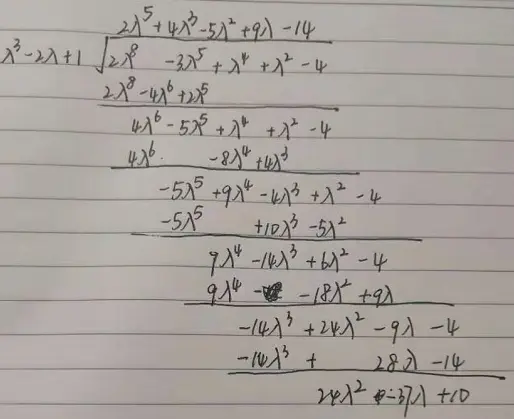 2λ⁵ + 4λ³ - 5λ² + 9λ - 14
λ³ - 2λ + 1 √ 2λ⁸ - 3λ⁵ + λ⁴ + λ² - 4
2λ⁸ - 4λ⁶ + 2λ⁵
4λ⁶ - 5λ⁵ + λ⁴ + λ² - 4
4λ⁶ - 8λ⁴ + 4λ³
-5λ⁵ + 9λ⁴ - 4λ³ + λ² - 4
-5λ⁵ + 10λ³ - 5λ²
9λ⁴ - 14λ³ + 6λ² - 4
9λ⁴ - 18λ² + 9λ
-14λ³ + 24λ² - 9λ - 4
-14λ³ + 28λ - 14
24λ² - 37λ + 10